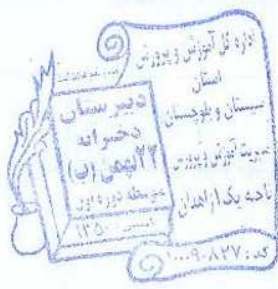 اداره کل آموزش و پرورش
استان
سیستان و بلوچستان
مدیریت آموزش و پرورش
ناحیه یک زاهدان
کد: ۱۰۰۰۹۰۸۲۷
دبیرستان
دخترانه
۲۲ بهمن (ن)
متوسطه دوره اول
تاسیس ۱۳۵۰